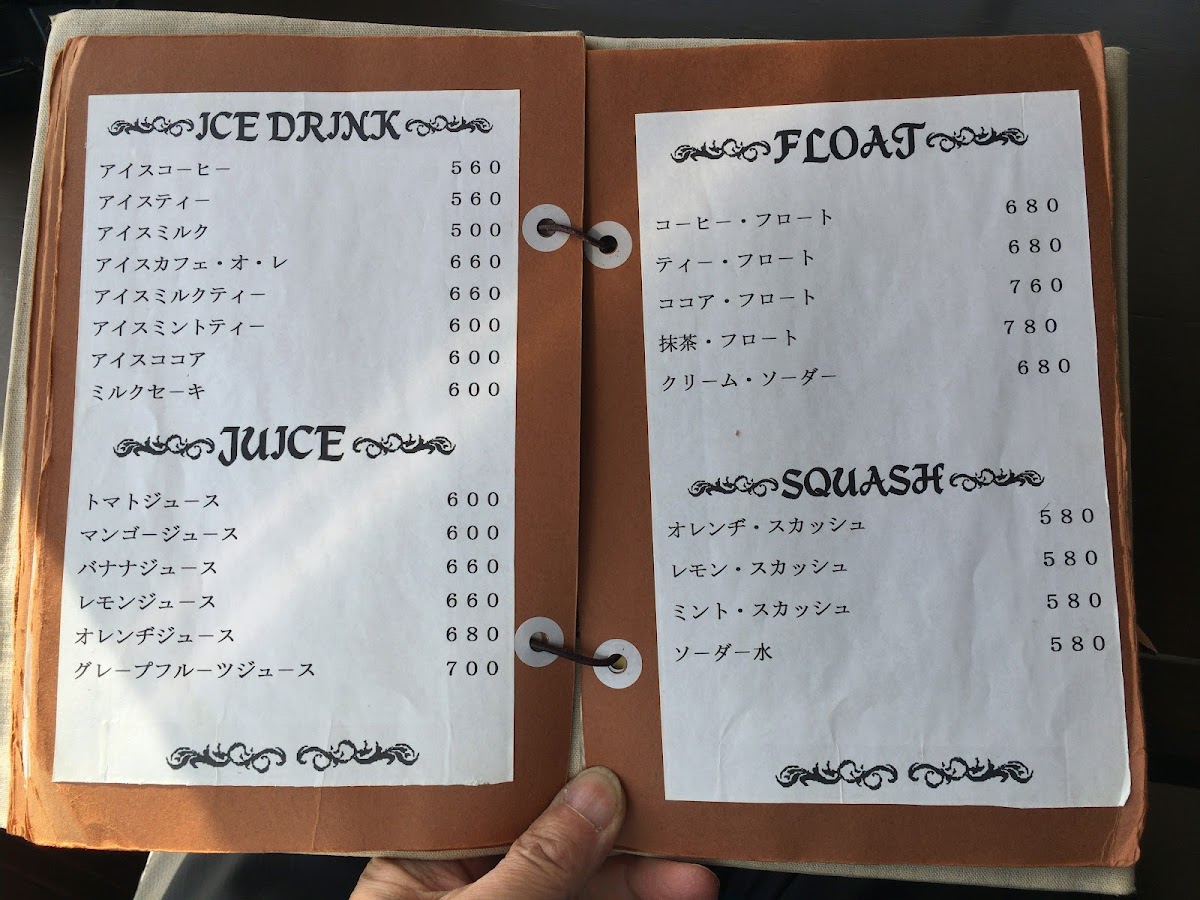 ICE DRINK
アイスコーヒー 560
アイスティー 560
アイスミルク 500
アイスカフェ・オ・レ 660
アイスミルクティー 660
アイスミントティー 600
アイスココア 600
ミルクセーキ 600
JUICE
トマトジュース 600
マンゴージュース 600
バナナジュース 660
レモンジュース 660
オレンヂジュース 680
グレープフルーツジュース 700
FLOAT
コーヒー・フロート 680
ティー・フロート 680
ココア・フロート 760
抹茶・フロート 780
クリーム・ソーダー 680
SQUASH
オレンヂ・スカッシュ 580
レモン・スカッシュ 580
ミント・スカッシュ 580
ソーダー水 580